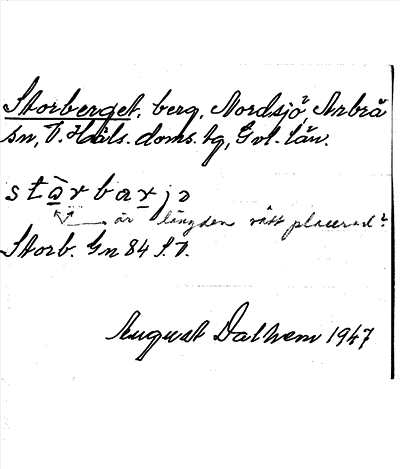 Storberget, berg, Nordsjö², Arbrå
sn, V. Häls. doms. tg, Gvl. län.
stꞷ̀rbarjə
är längden rätt placerad?
Storb. Gn 84 S.V.
August Dalhem 1947